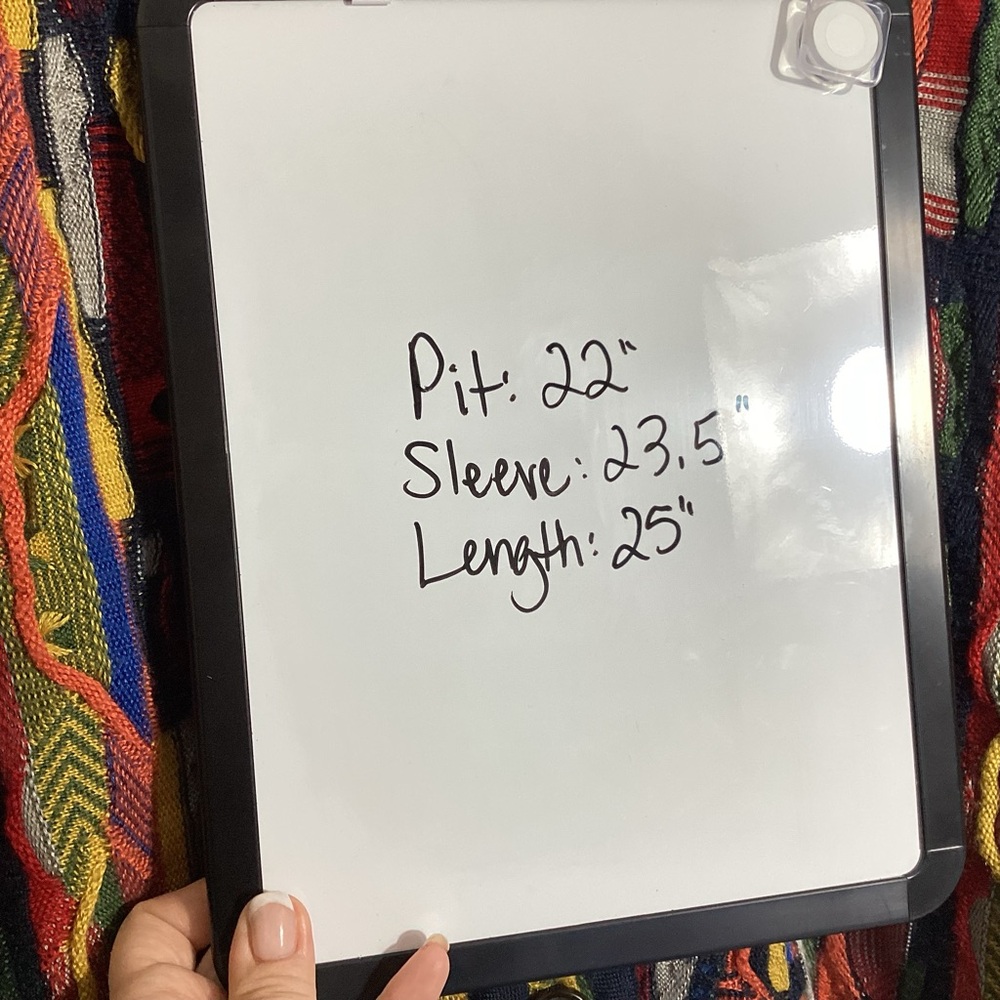 Pit: 22"
Sleeve: 23.5"
Length: 25"